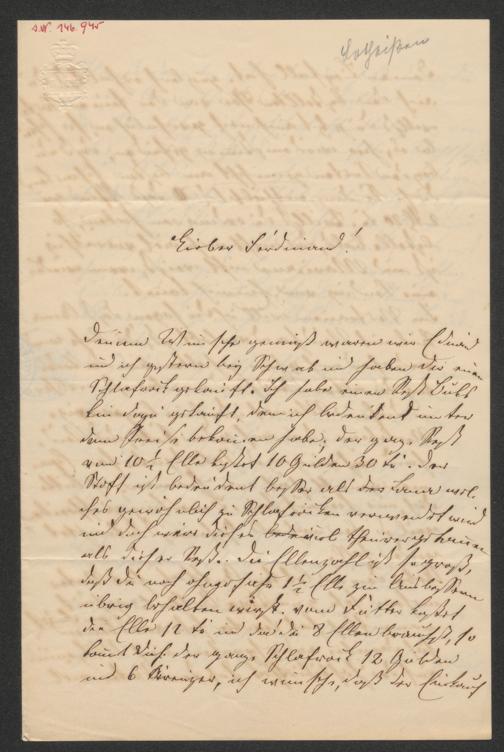 I.N. 146.945
Lotheißen
Lieber Ferdinand!
Deinem Wunsche gemäß waren wir Edmund
und ich gestern bey Schwab und haben dir einen
Schlafrock gekauft. Ich habe einen Rest
dazu gekauft, den ich bedeutend unter
dem Preise bekommen habe, der ganze Rest
von 10 ½ Elle kostet 10 Gulden 30 kr. Der
Stoff ist bedeutend besser als der Lama wel¬
ches gewöhnlich zu Schlafröcken verwendet wird
und doch wäre dieses theurer gekommen
als dieser Rest. Die Ellenzahl ist so groß,
daß du noch ohngefähr 1 ½ Elle zum Ausbessern
übrig behalten wirst. Vom Futter kostet
die Elle 12 kr und da du 8 Ellen brauchst, so
kömt dich der ganze Schlafrock 12 Gulden
und 6 Kreuzer, ich wünsche, daß der Einkauf